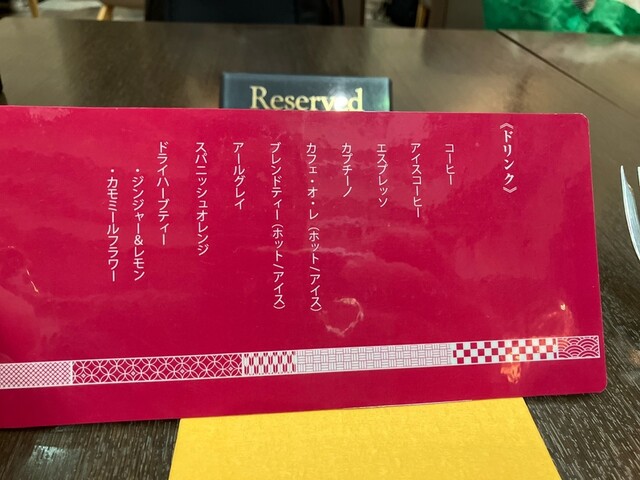 Reserved
《ドリンク》
コーヒー
アイスコーヒー
エスプレッソ
カプチーノ
カフェ・オ・レ（ホット/アイス）
ブレンドティー（ホット/アイス）
アールグレイ
スパニッシュオレンジ
ドライハーブティー
・ジンジャー&レモン
・カモミールフラワー